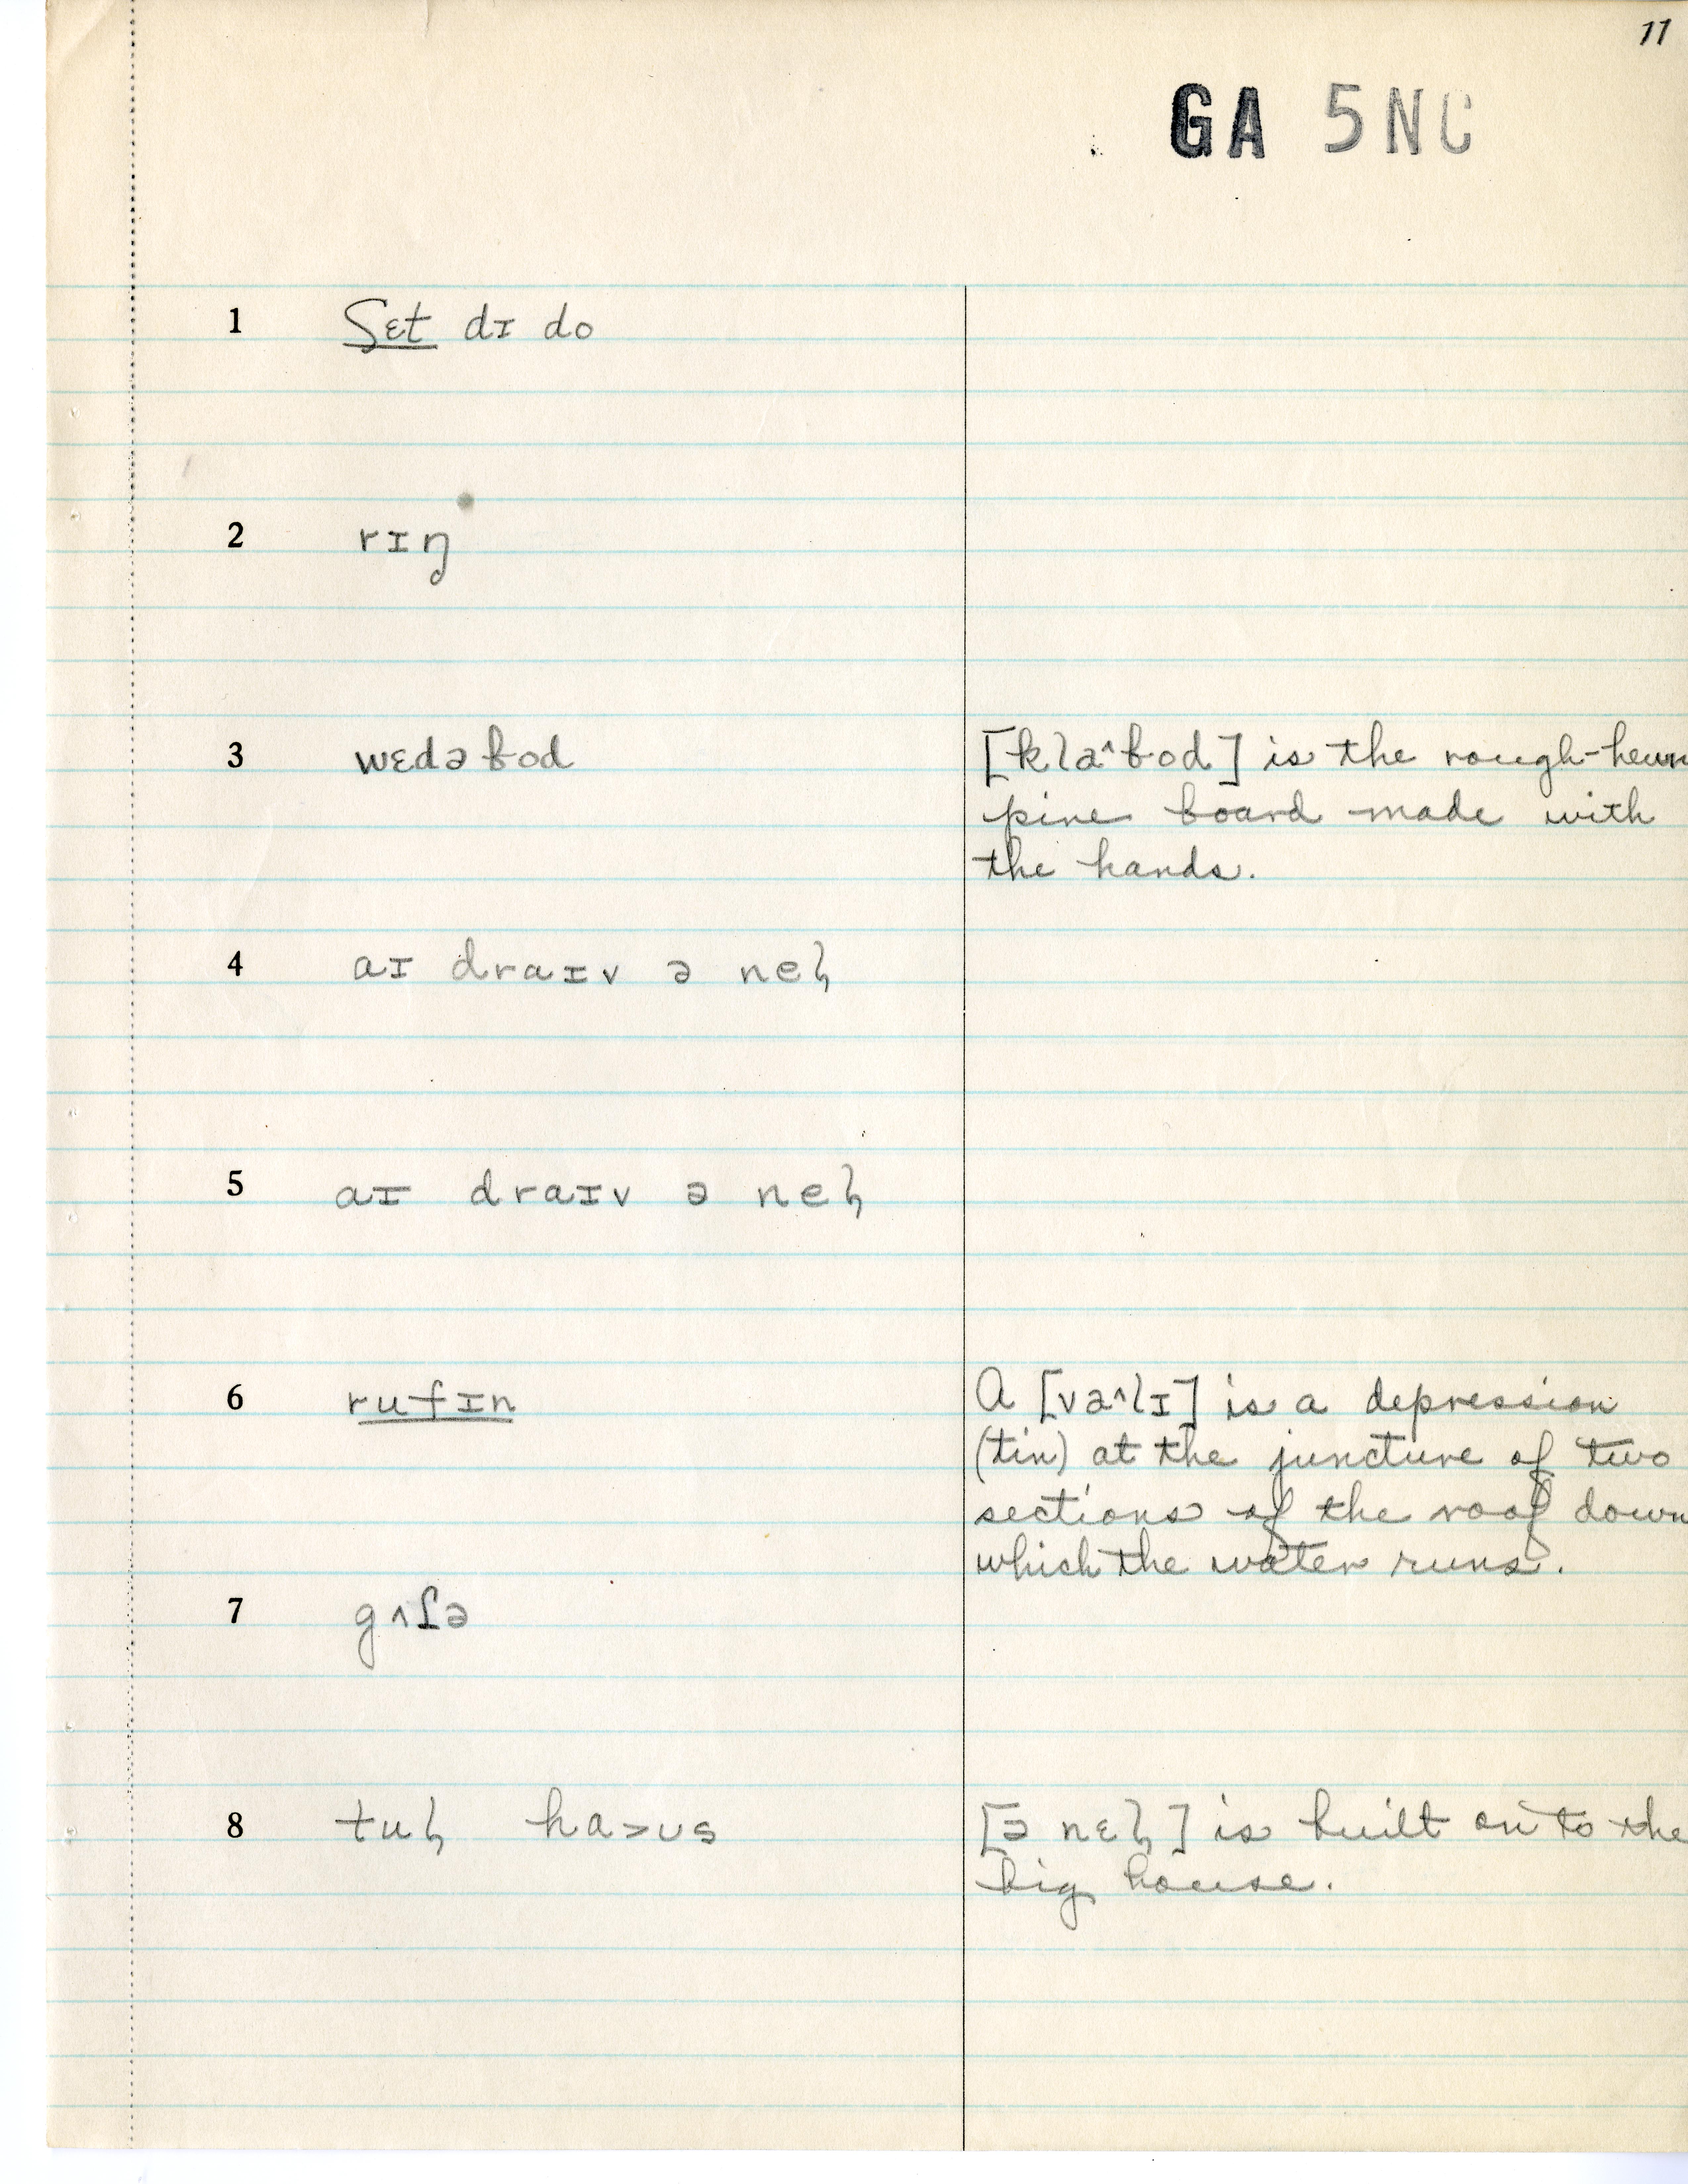 11
GA 5NC
1 Sɛt dɪ do
2 rɪŋ
3 wɛdəbod
[klə^bod] is the rough-hewn
pine board made with
the hands.
4 aɪ draɪv ə neɫ̡
5 aɪ draɪv ə neɫ̡
6 rufɪn
A [və^lɪ] is a depression
(tin) at the juncture of two
sections of the roof down
which the water runs.
7 gʌtə
8 tuɫ̡ ha>ʊs
[ə nɛɫ̡] is built on to the
big house.